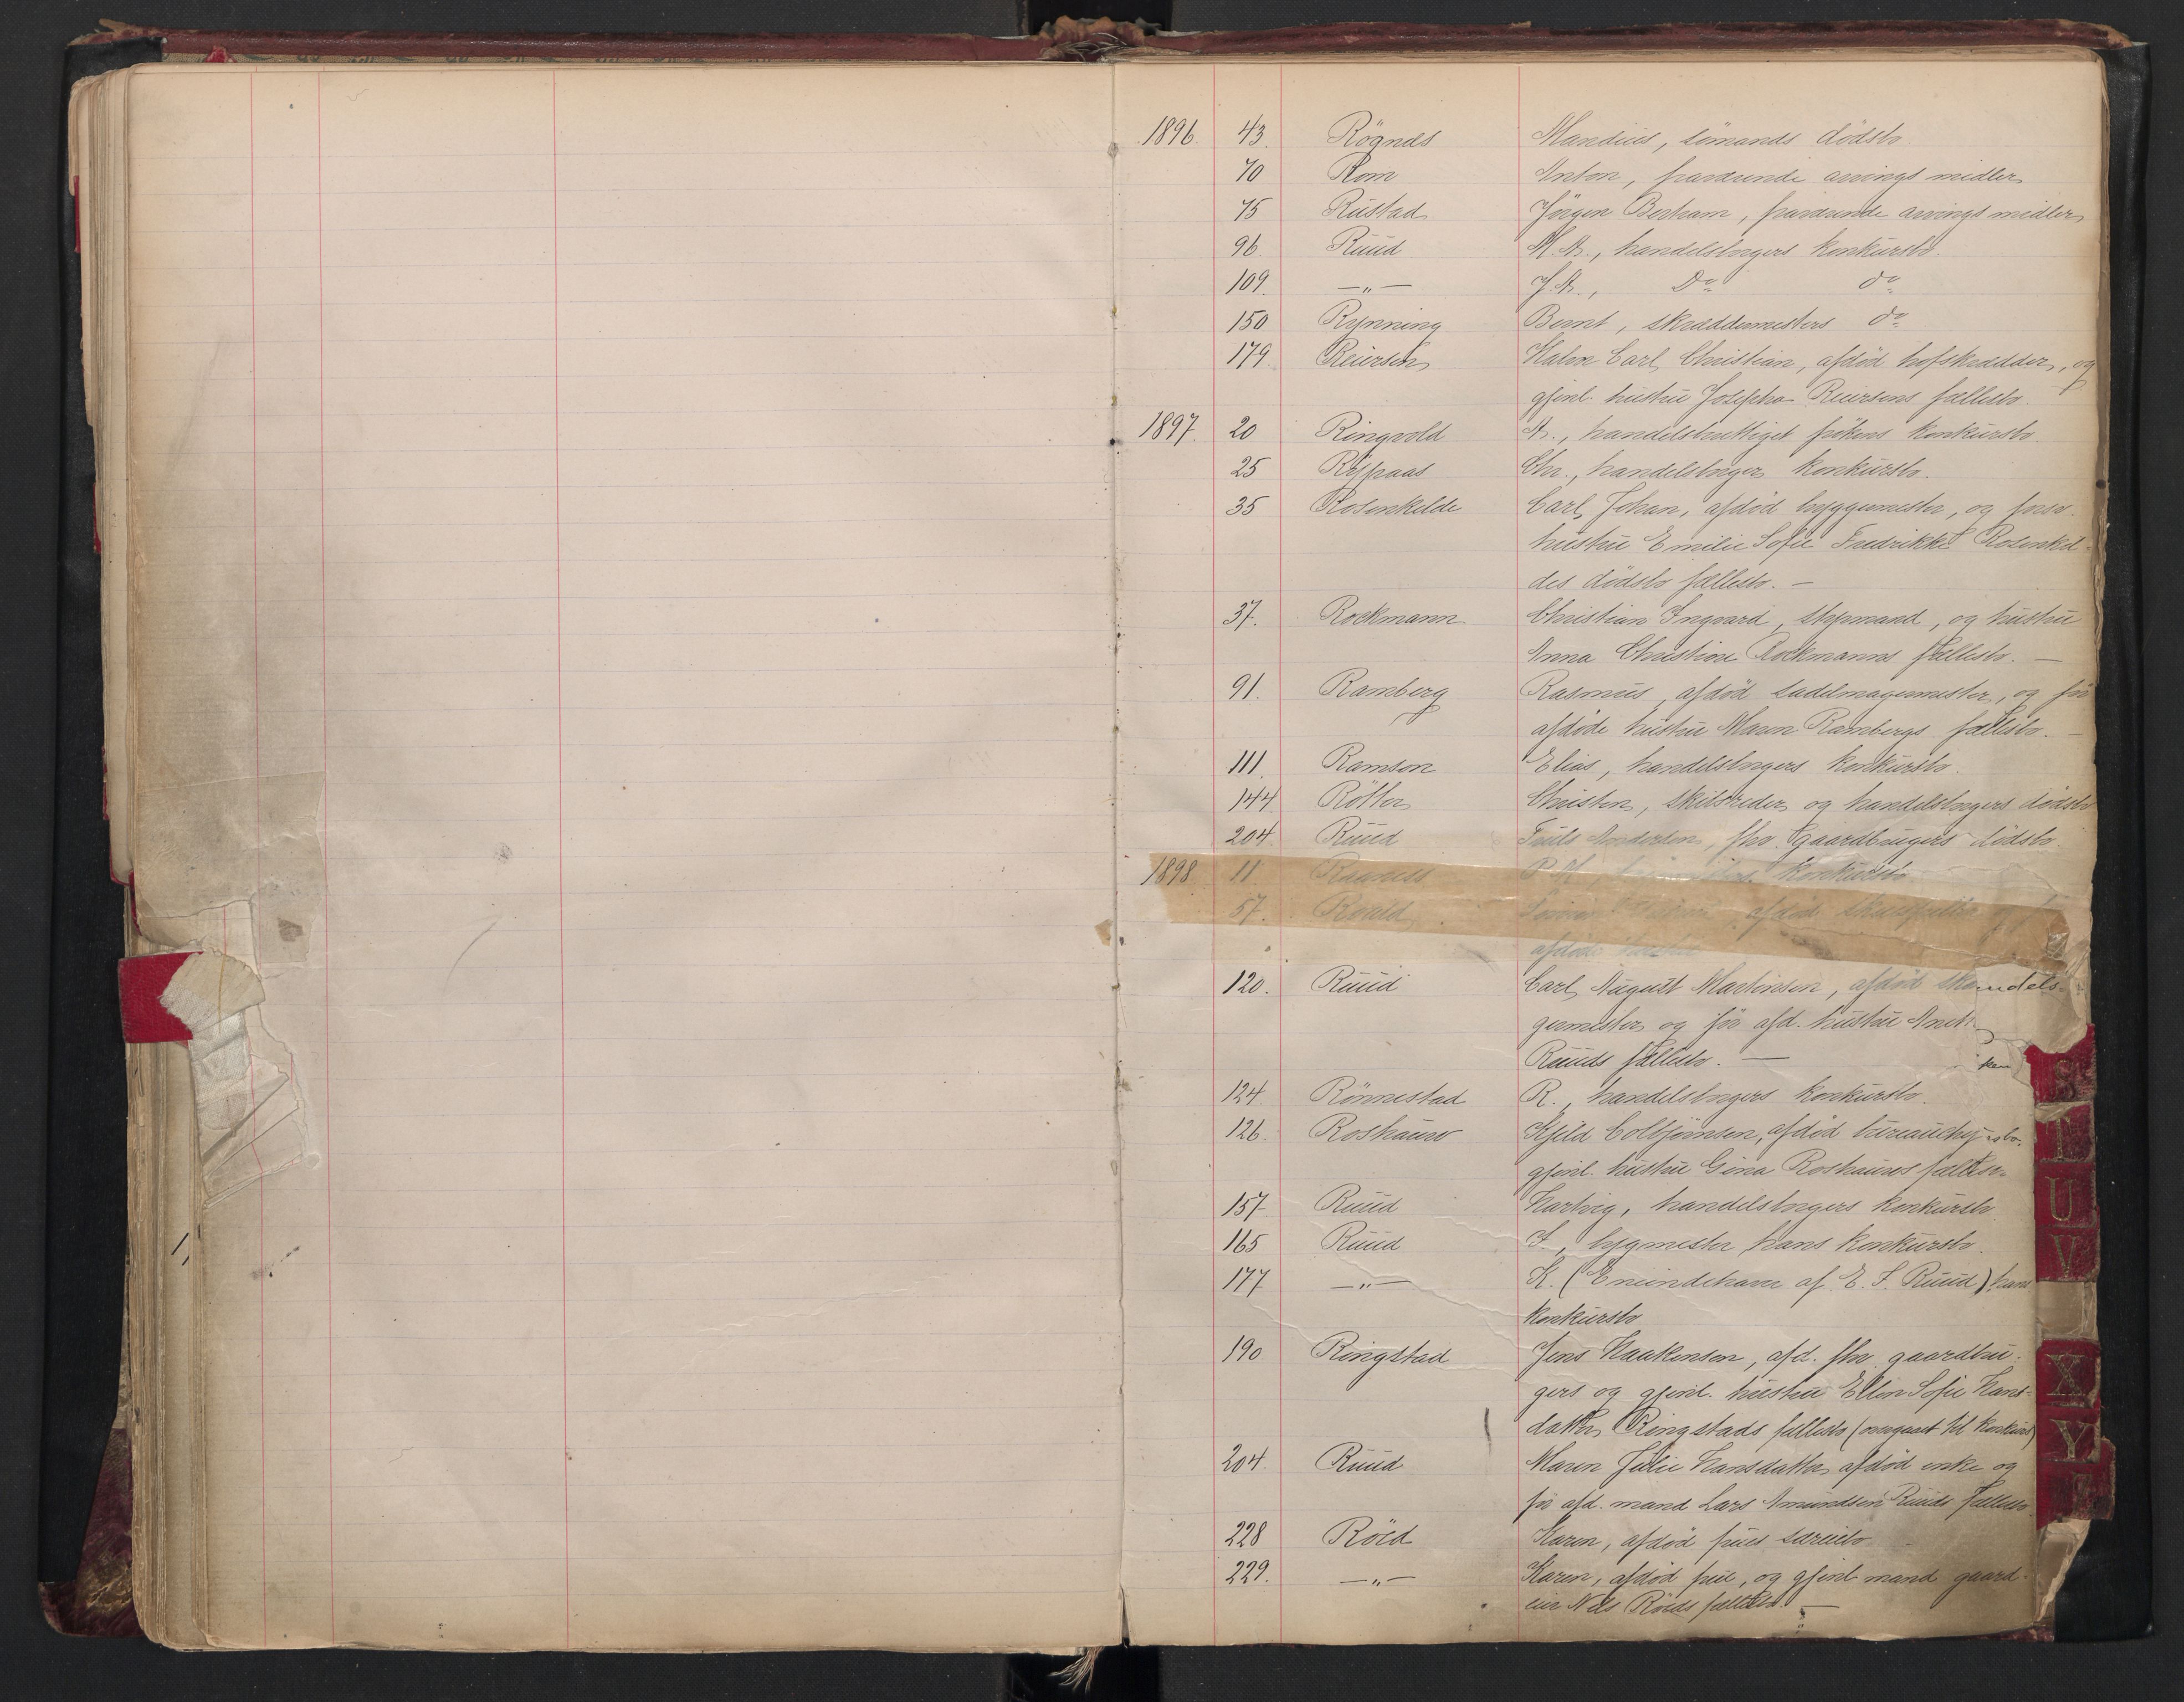 1896. 43. Rögnes Mandius, sömands dödsbo.
70 Rom Anton, fraværende arvings midler
75 Rustad Jörgen Bertram, fraværende arvings midler
96. Ruud M. A., handelsbrgers konkursbo.
109. —"— J. A., Do do
150 Rynning Bernt, skræddermesters do
179 Reiersen Halvor Carl Christian, afdöd hofskrædder, og
gjenl. hustru Josepha Reiersens fællesbo.
1897. 20 Ringvold A., handelsberettiget frökens konkursbo
25 Rypaas Chr., handelsbrger konkursbo.
35 Rosenkilde Carl Johan, afdöd byggemester, og
hustru Emilie Sofie Fredrikke Rosenkil-
des dödsbo fællesbo. —
37. Rockmann Christian Ingvard, styrmand, og hustru
Anna Christine Rockmanns fællesbo. —
91. Ramberg Rasmus, afdöd sadelmagermester, og för
afdöde hustru Maren Rambergs fællesbo. —
111. Ramson Elias, handelsbrgers konkursbo.
144 Rötter Christen, skibsreder og handelsbrgers dödsbo
204. Ruud Truls Andersen, fhv. gaardbrugers dödsbo.
1898 11 Raaness P. konkursbo
57. Roald afdöd
afdöde hustru
120. Ruud Carl August Martinsen, afdöd
ndels-
germester og för afd. hustru
Ruuds fællesbo. —
ken
124. Rönnestad R., handelsbrgers konkursbo.
126. Roshauw Kjeld Colbjörnsen, afdöd bureauchef
sbo.
gjenl. hustru Gina Roshauws fællesbo
157 Ruud Hartvig, handelsbrgers konkursbo
165 Ruud I., bygmester hans konkursbo.
177 —"— K. (Eneindehaver af E. I. Ruud) hans
konkursbo
190 Ringstad Jens Haakensen, afd. fhv. gaardbru-
gers og gjenl. hustru Ellen Sofie Hans-
datter Ringstads fællesbo (overgaaet til konkurs)
204. Ruud Maren Julie Hansdatter afdöd enke og
för afd. mand Lars Amundsen Ruuds fællesbo
228 Röed Karen, afdöd frues særeiebo
229. —"— Karen, afdöd frue, og gjenl. mand gaard-
eier Nils Röeds fællesbo. —
S
T
U
V
X
Y